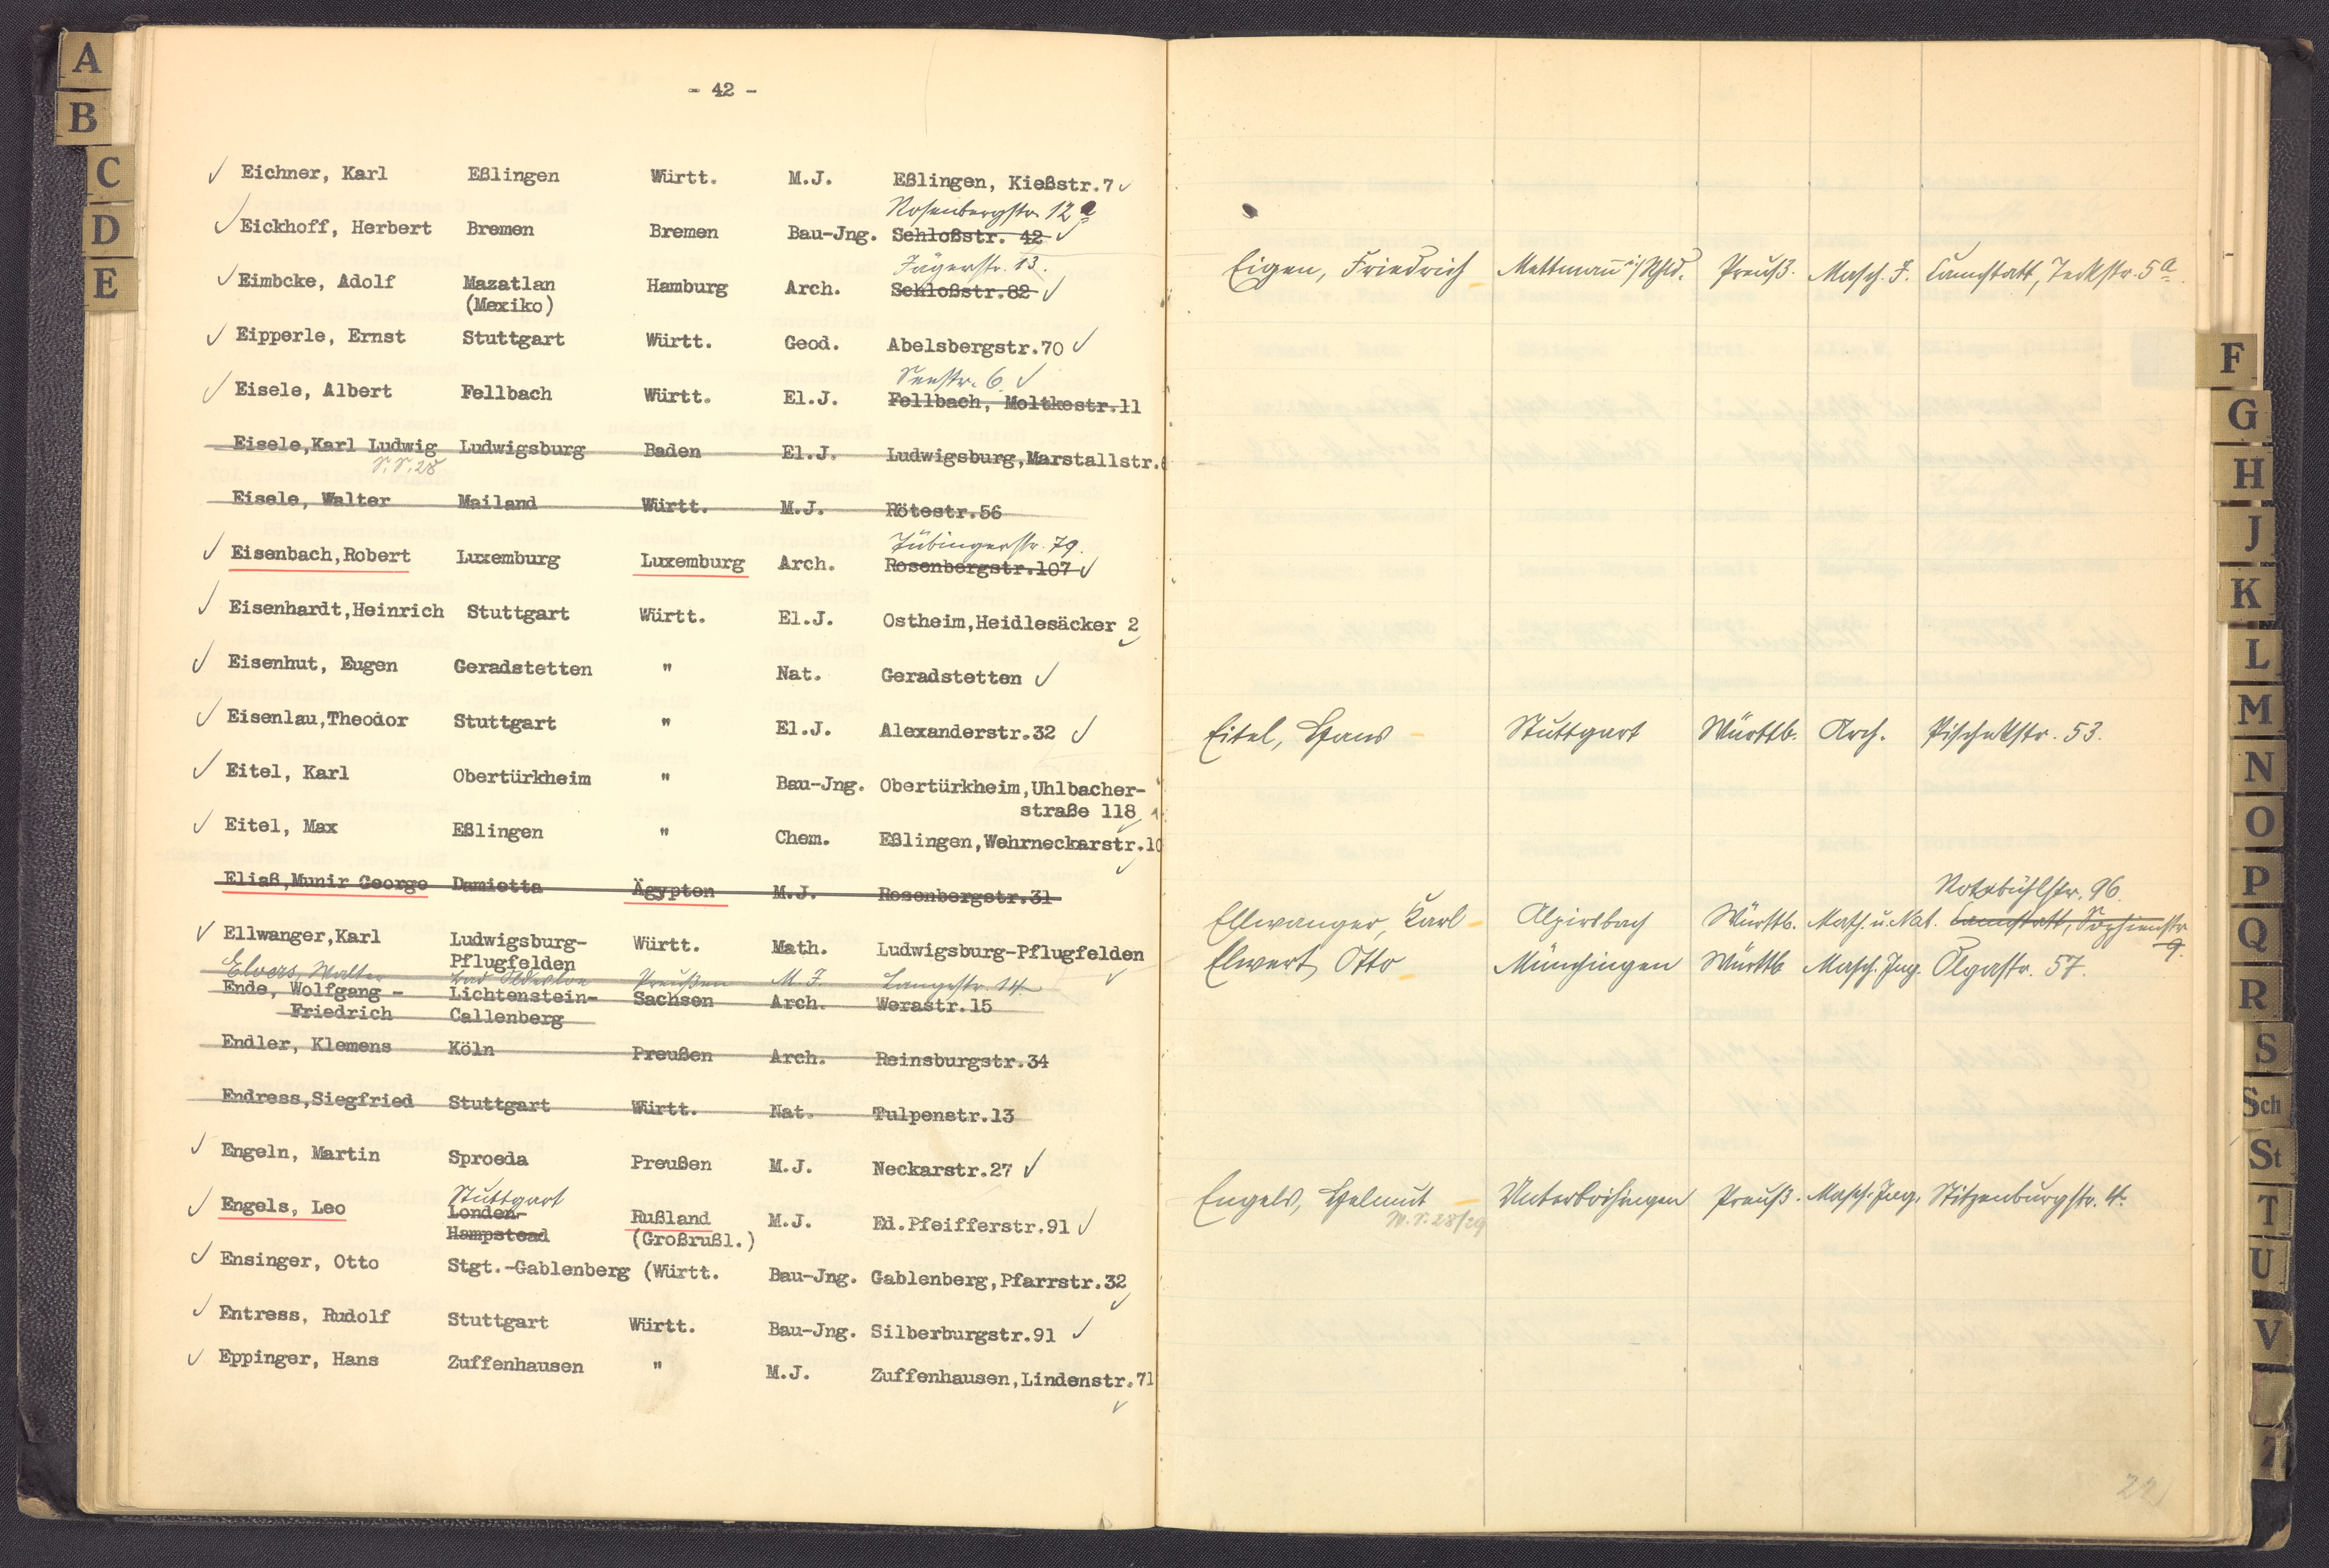 - 42 -
Eichner, Karl Eßlingen Württ. M.J. Eßlingen, Kießstr.7
Rosenbergstr. 12 a
Eickhoff, Herbert Bremen Bremen Bau-Jng. Schloßstr. 42
Jägerstr. 13.
Eimbcke, Adolf Mazatlan Hamburg Arch. Schloßstr.82
(Mexiko)
Eipperle, Ernst Stuttgart Württ. Geod. Abelsbergstr.70
Seestr. 6.
Eisele, Albert Fellbach Württ. El.J. Fellbach, Moltkestr.11
Eisele,Karl Ludwig Ludwigsburg Baden El.J. Ludwigsburg,Marstallstr.
S.S.28
Eisele, Walter Mailand Württ. M.J. Rötestr.56
Tübingerstr. 79.
Eisenbach,Robert Luxemburg Luxemburg Arch. Rosenbergstr.107
Eisenhardt,Heinrich Stuttgart Württ. El.J. Ostheim,Heidlesäcker 2
Eisenhut, Eugen Geradstetten " Nat. Geradstetten
Eisenlau,Theodor Stuttgart " El.J. Alexanderstr.32
Eitel, Karl Obertürkheim " Bau-Jng. Obertürkheim,Uhlbacher-
straße 118
Eitel, Max Eßlingen " Chem. Eßlingen,Wehrneckarstr.10
Eliaß,Munir George Damietta Ägypten M.J. Rosenbergstr.31
Ellwanger,Karl Ludwigsburg- Württ. Math. Ludwigsburg-Pflugfelden
Pflugfelden
Elvers, Walter Bad Oldesloe Preußen M.J. Langestr. 14
Ende, Wolfgang - Lichtenstein- Sachsen Arch. Werastr.15
Friedrich Callenberg
Endler, Klemens Köln Preußen Arch. Reinsburgstr.34
Endress,Siegfried Stuttgart Württ. Nat. Tulpenstr.13
Engeln, Martin Sproeda Preußen M.J. Neckarstr.27
Stuttgart
Engels, Leo London- Rußland M.J. Ed.Pfeifferstr.91
Hampstead (Großrußl.)
Ensinger, Otto Stgt.-Gablenberg (Württ. Bau-Jng. Gablenberg,Pfarrstr.32
Entress, Rudolf Stuttgart Württ. Bau-Jng. Silberburgstr.91
Eppinger, Hans Zuffenhausen " M.J. Zuffenhausen,Lindenstr.71
Eigen, Friedrich Mettmann i/Rhld. Preuß. Masch. J. Cannstatt, Teckstr. 5a
Eitel, Hans Stuttgart Württb. Arch. Pischekstr. 53.
Rotebühlstr. 96.
Ellwanger, Karl Alpirsbach Württb. Math. u. Nat. Cannstatt, Sophienstr.
9.
Elwert, Otto Münsingen Württb Masch. Ing. Olgastr. 57.
Engels, Helmut Unterboihingen Preuß. Masch. Ing. Stitzenburgstr. 4.
W.S. 28/29
22
A
B
C
D
E
F
G
H
J
K
L
M
N
O
P
Q
R
S
Sch
St
T
U
V
Z